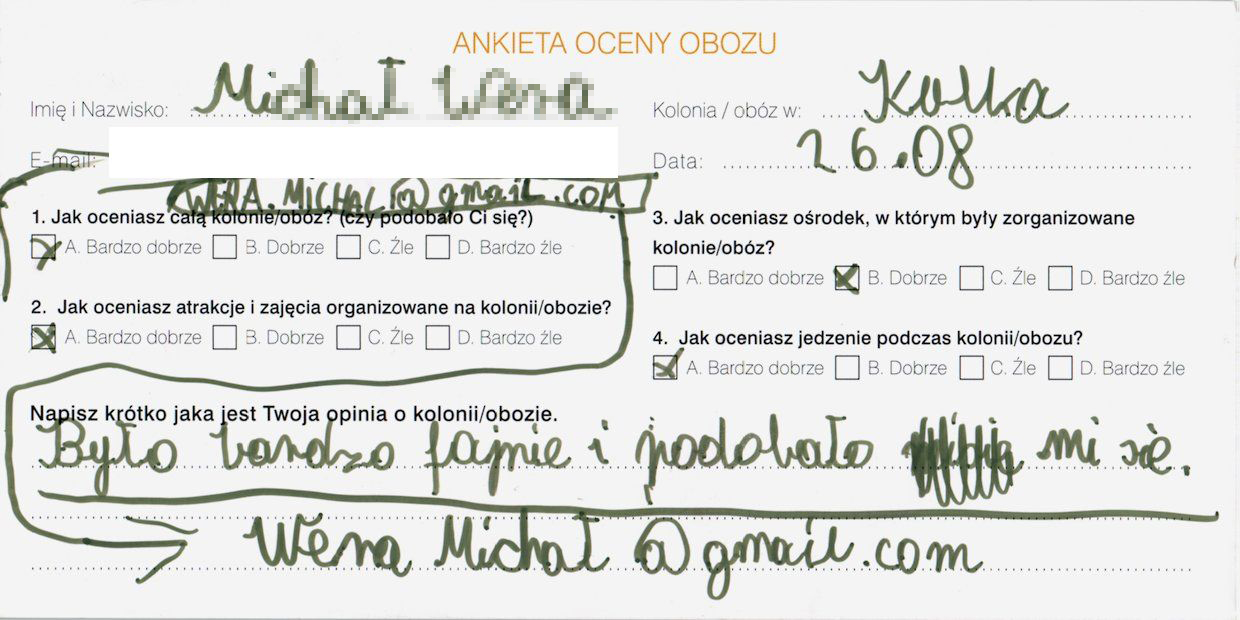 ANKIETA OCENY OBOZU
Imię i Nazwisko:
Kolonia / obóz w: Kulka
E-mail:
Data: 26.08
WERA.MICHAL@gmail.com
1. Jak oceniasz całą kolonie/obóz? (czy podobało Ci się?)
A. Bardzo dobrze B. Dobrze C. Źle D. Bardzo źle
2. Jak oceniasz atrakcje i zajęcia organizowane na kolonii/obozie?
A. Bardzo dobrze B. Dobrze C. Źle D. Bardzo źle
3. Jak oceniasz ośrodek, w którym były zorganizowane
kolonie/obóz?
A. Bardzo dobrze B. Dobrze C. Źle D. Bardzo źle
4. Jak oceniasz jedzenie podczas kolonii/obozu?
A. Bardzo dobrze B. Dobrze C. Źle D. Bardzo źle
Napisz krótko jaka jest Twoja opinia o kolonii/obozie.
Było bardzo fajnie i podobało mi się.
Wera Michał @gmail.com